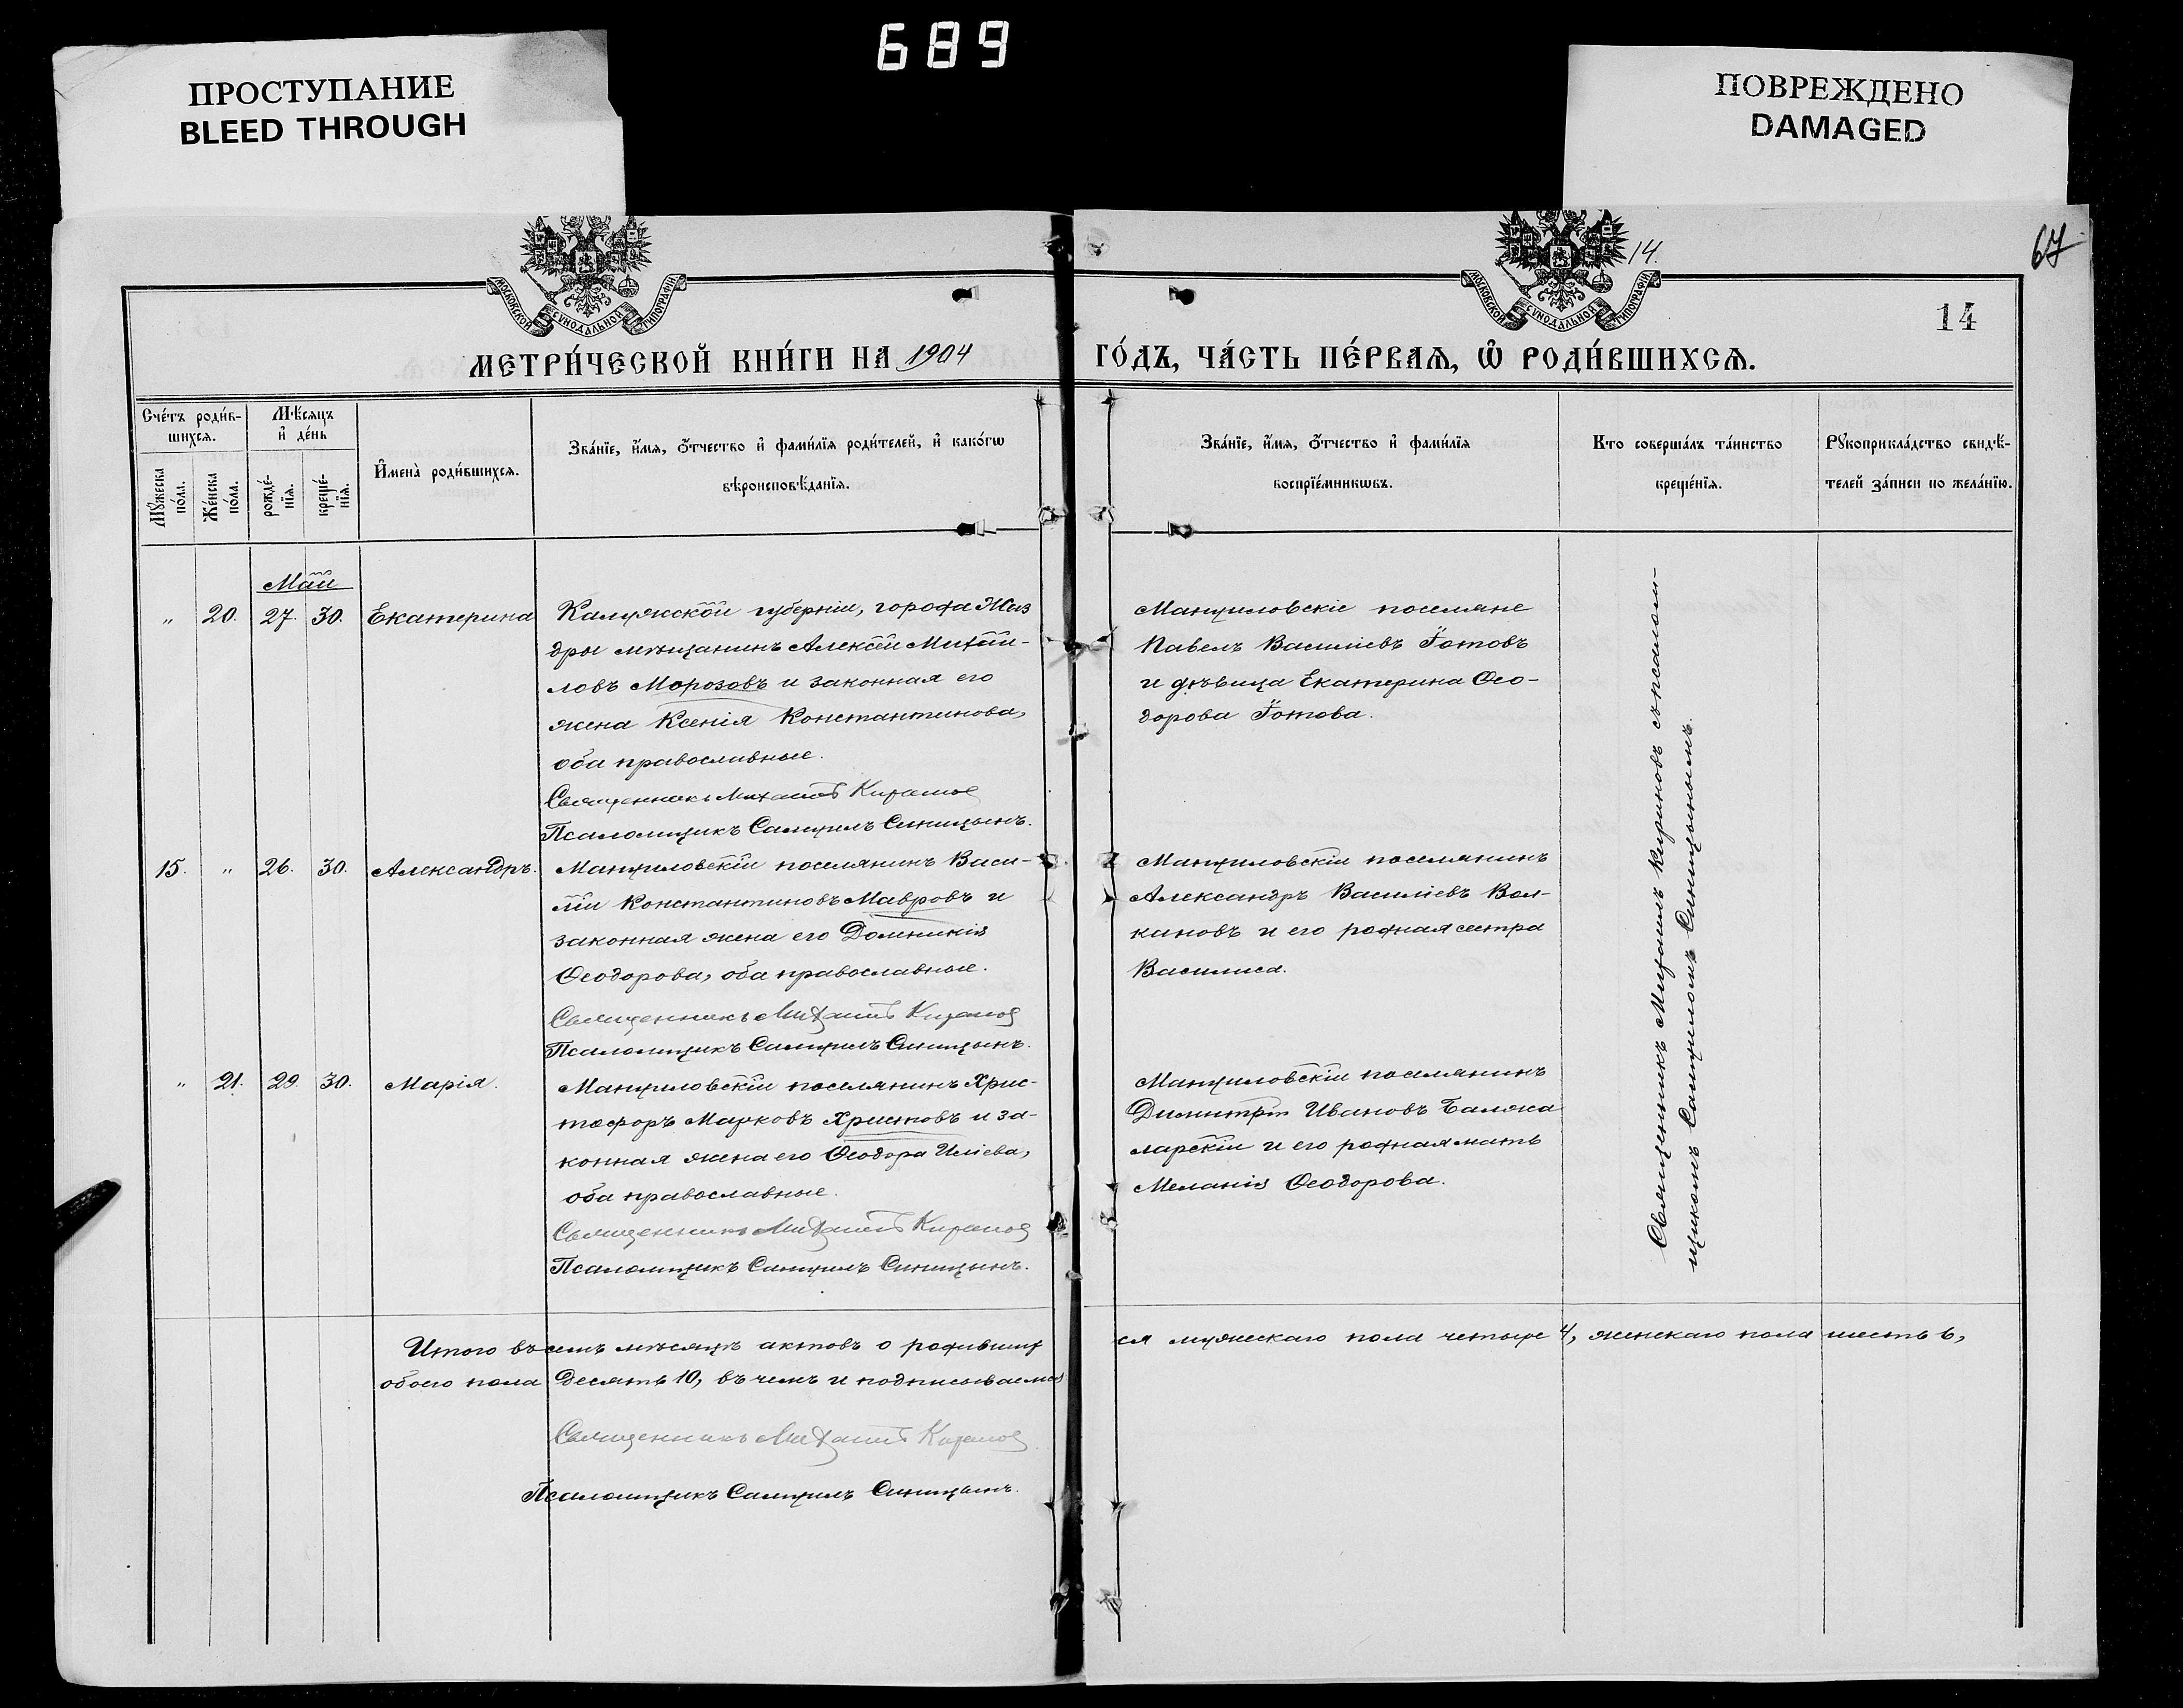 689
ПРОСТУПАНИЕ
BLEED THROUGH
ПОВРЕЖДЕНО
DAMAGED
67
14.
14
МОСКОВСКОЙ СѴНОДАЛЬНОЙ ТИПОГРАФІИ
МОСКОВСКОЙ СѴНОДАЛЬНОЙ ТИПОГРАФІИ
МЕТРИ́ЧЕСКОЙ КНИ́ГИ НА 1904
ГО́ДЪ, ЧА́СТЬ ПЕ́РВАѦ, Ѽ РОДИ́ВШИХСѦ.
Сче́тъ роди́в-
шихсѧ.
Мꙋ́жеска по́ла.
Же́нска по́ла.
Мѣ́сѧцъ
и҆ де́нь
рожде́-
нїѧ.
креще́-
нїѧ.
И҆мена̀ роди́вшихсѧ.
Зва́нїе, и҆́мѧ, ѻ҆́тчество и҆ фами́лїѧ роди́телей, и҆ како́гѡ
вѣроисповѣ́данїѧ.
Зва́нїе, и҆́мѧ, ѻ҆́тчество и҆ фами́лїѧ
воспрїе́мникѡвъ.
Кто соверша́лъ та́инство
креще́нїѧ.
Рꙋкоприкла́дство свидѣ́-
телей за́писи по жела́нїю.
Май
„ 20. 27. 30. Екатерина
Калужской губерніи, города Жиз
дры мѣщанинъ Алексѣй Михай-
ловъ Морозовъ и законная его
жена Ксенія Константинова,
оба православные.
Священникъ Михаилъ Кириновъ
Псаломщикъ Самуилъ Синицынъ.
Манзуловскіе поселяне
Павелъ Василіевъ Готовъ
и дѣвица Екатерина Ѳео-
дорова Готова.
15. „ 26. 30. Александръ.
Манзуловскій поселянинъ Васи-
лій Константиновъ Мавровъ и
законная жена его Домникія
Ѳеодорова, оба православные.
Священникъ Михаилъ Кириновъ
Псаломщикъ Самуилъ Синицынъ.
Манзуловскій поселянинъ
Александръ Василіевъ Вол-
кановъ и его родная сестра
Василиса.
„ 21. 29. 30. Марія.
Манзуловскій поселянинъ Хрис-
тофоръ Марковъ Христовъ и за-
конная жена его Ѳеодора Иліева,
оба православные.
Священникъ Михаилъ Кириновъ
Псаломщикъ Самуилъ Синицынъ.
Манзуловскій поселянинъ
Димитрій Ивановъ Баляка
ларскій и его родная мать
Меланія Ѳеодорова.
Священникъ Михаилъ Кириновъ съ псалом-
щикомъ Самуиломъ Синицынымъ.
Итого въ семъ мѣсяцѣ актовъ о родивших
ся мужескаго пола четыре 4, женскаго пола шесть 6,
обоего пола десять 10, въ чемъ и подписываемся
Священникъ Михаилъ Кириновъ
Псаломщикъ Самуилъ Синицынъ.